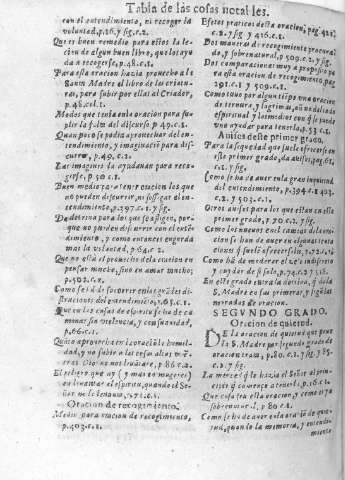 Tabla de las cosas notables.
con el entendimiento, ni recoger la
voluntad, p.26. y sig. c.2.
Que es buen remedio para estos la le-
ction de algun buen libro, que los ayu
da a recogerse, p.48. c.1.
Para esta oracion hazia prouecho a la
Santa Madre el libro de las criatu-
ras, para subir por ellas al Criador,
p.48. col.1.
Modos que tenia esta oracion para su-
plir la falta del discurso p.49. c.1.
Quan poco se podia aprouechar del en-
tendimiento, y imaginacion para dis-
currir, p.49. c.2.
Las imagines la ayudauan para reco-
gerse, p.50. c.1.
Buen medio para tener oracion los que
no pueden discurrir, ni sossegar el en-
tendimiento, p.397. c.1. y sig.
Da dotrina para los que
no pueden discurrir con el enten-
dimiento, y como entonces engorda
mas la voluntad, p.541. c.2.
Que no està el prouecho de la oracion en
pensar mucho, sino en amar mucho,
p.502. c.2.
Como se ha de socorrer en las grandes di-
stracciones del entendimiento, p.65. c.1.
Que en las cosas de espiritu se ha de ca-
minar sin violencia, y con suauidad,
p.66. c.1.
Quāto aprouecha en la oraciō la humil-
dad, y no subir a las cosas altas
Dios no nos leuātare, p.86. c.2.
El peligro que ay (y mas en mugeres)
en leuantar el espiritu, quando el Se-
ñor no le leuanta, p.71. c.1.
Oracion de recogimiento.
Medio para oracion de recogimiento,
p.403. c.1.
Efetos praticos desta oracion, pag. 421.
c.2. y sig. y 426. c.1.
Dos maneras de recogimiento procura-
do, y sobrenatural, p.509. c.2.
Dos comparaciones muy a proposito pa
ra esta oracion de recogimiento, pag.
291. c.1. y 509. c.1.
Como tuuo por algun tiempo una oracion
de ternura, y lagrimas,
espiritual y los medios con que se puede
uno ayudar para tenerlo, p.53. c.1.
Auisos deste primer grado.
Para la sequedad que suele ofrecerse en
este primer grado, da auisos, pag. 61.
c.1. y sig.
Como se ha de auer en la gran inquietud
del entendimiento, p.394. c.1 403.
c.2. y 503. c.1.
Otros auisos para los que estan en este
primer grado, p.70. c.2. y sig.
Como los nueuos en el camino del a ora-
cion se han de auer en algunas tenta
ciones que suelē ofrecerse les, p.72.
Como hā de moderar el zelo indiscre
y cuydar de si solo, p.74. c.2.
En este grado entra la dotrina, q̄ da la
S. Madre en sus primeras, y segūdas
moradas de oracion.
SEGVNDO GRADO.
Oracion de quietud.
DE la oracion de quietud que puso
la S. Madre por segundo grado de
oracion trata, p.80. c.1. y sig. y 85.
c.2. y sig.
La merced q̄ le hazia el Señor al prin-
cipio q̄ començò a tenerla, p.16. c.1.
Que cosa sea esta oracion, y como es ya
sobrenatural, p 80. c.1.
Como se ha de auer en la oraciō de quie-
tud, quanto la memoria, y entendi-
miento